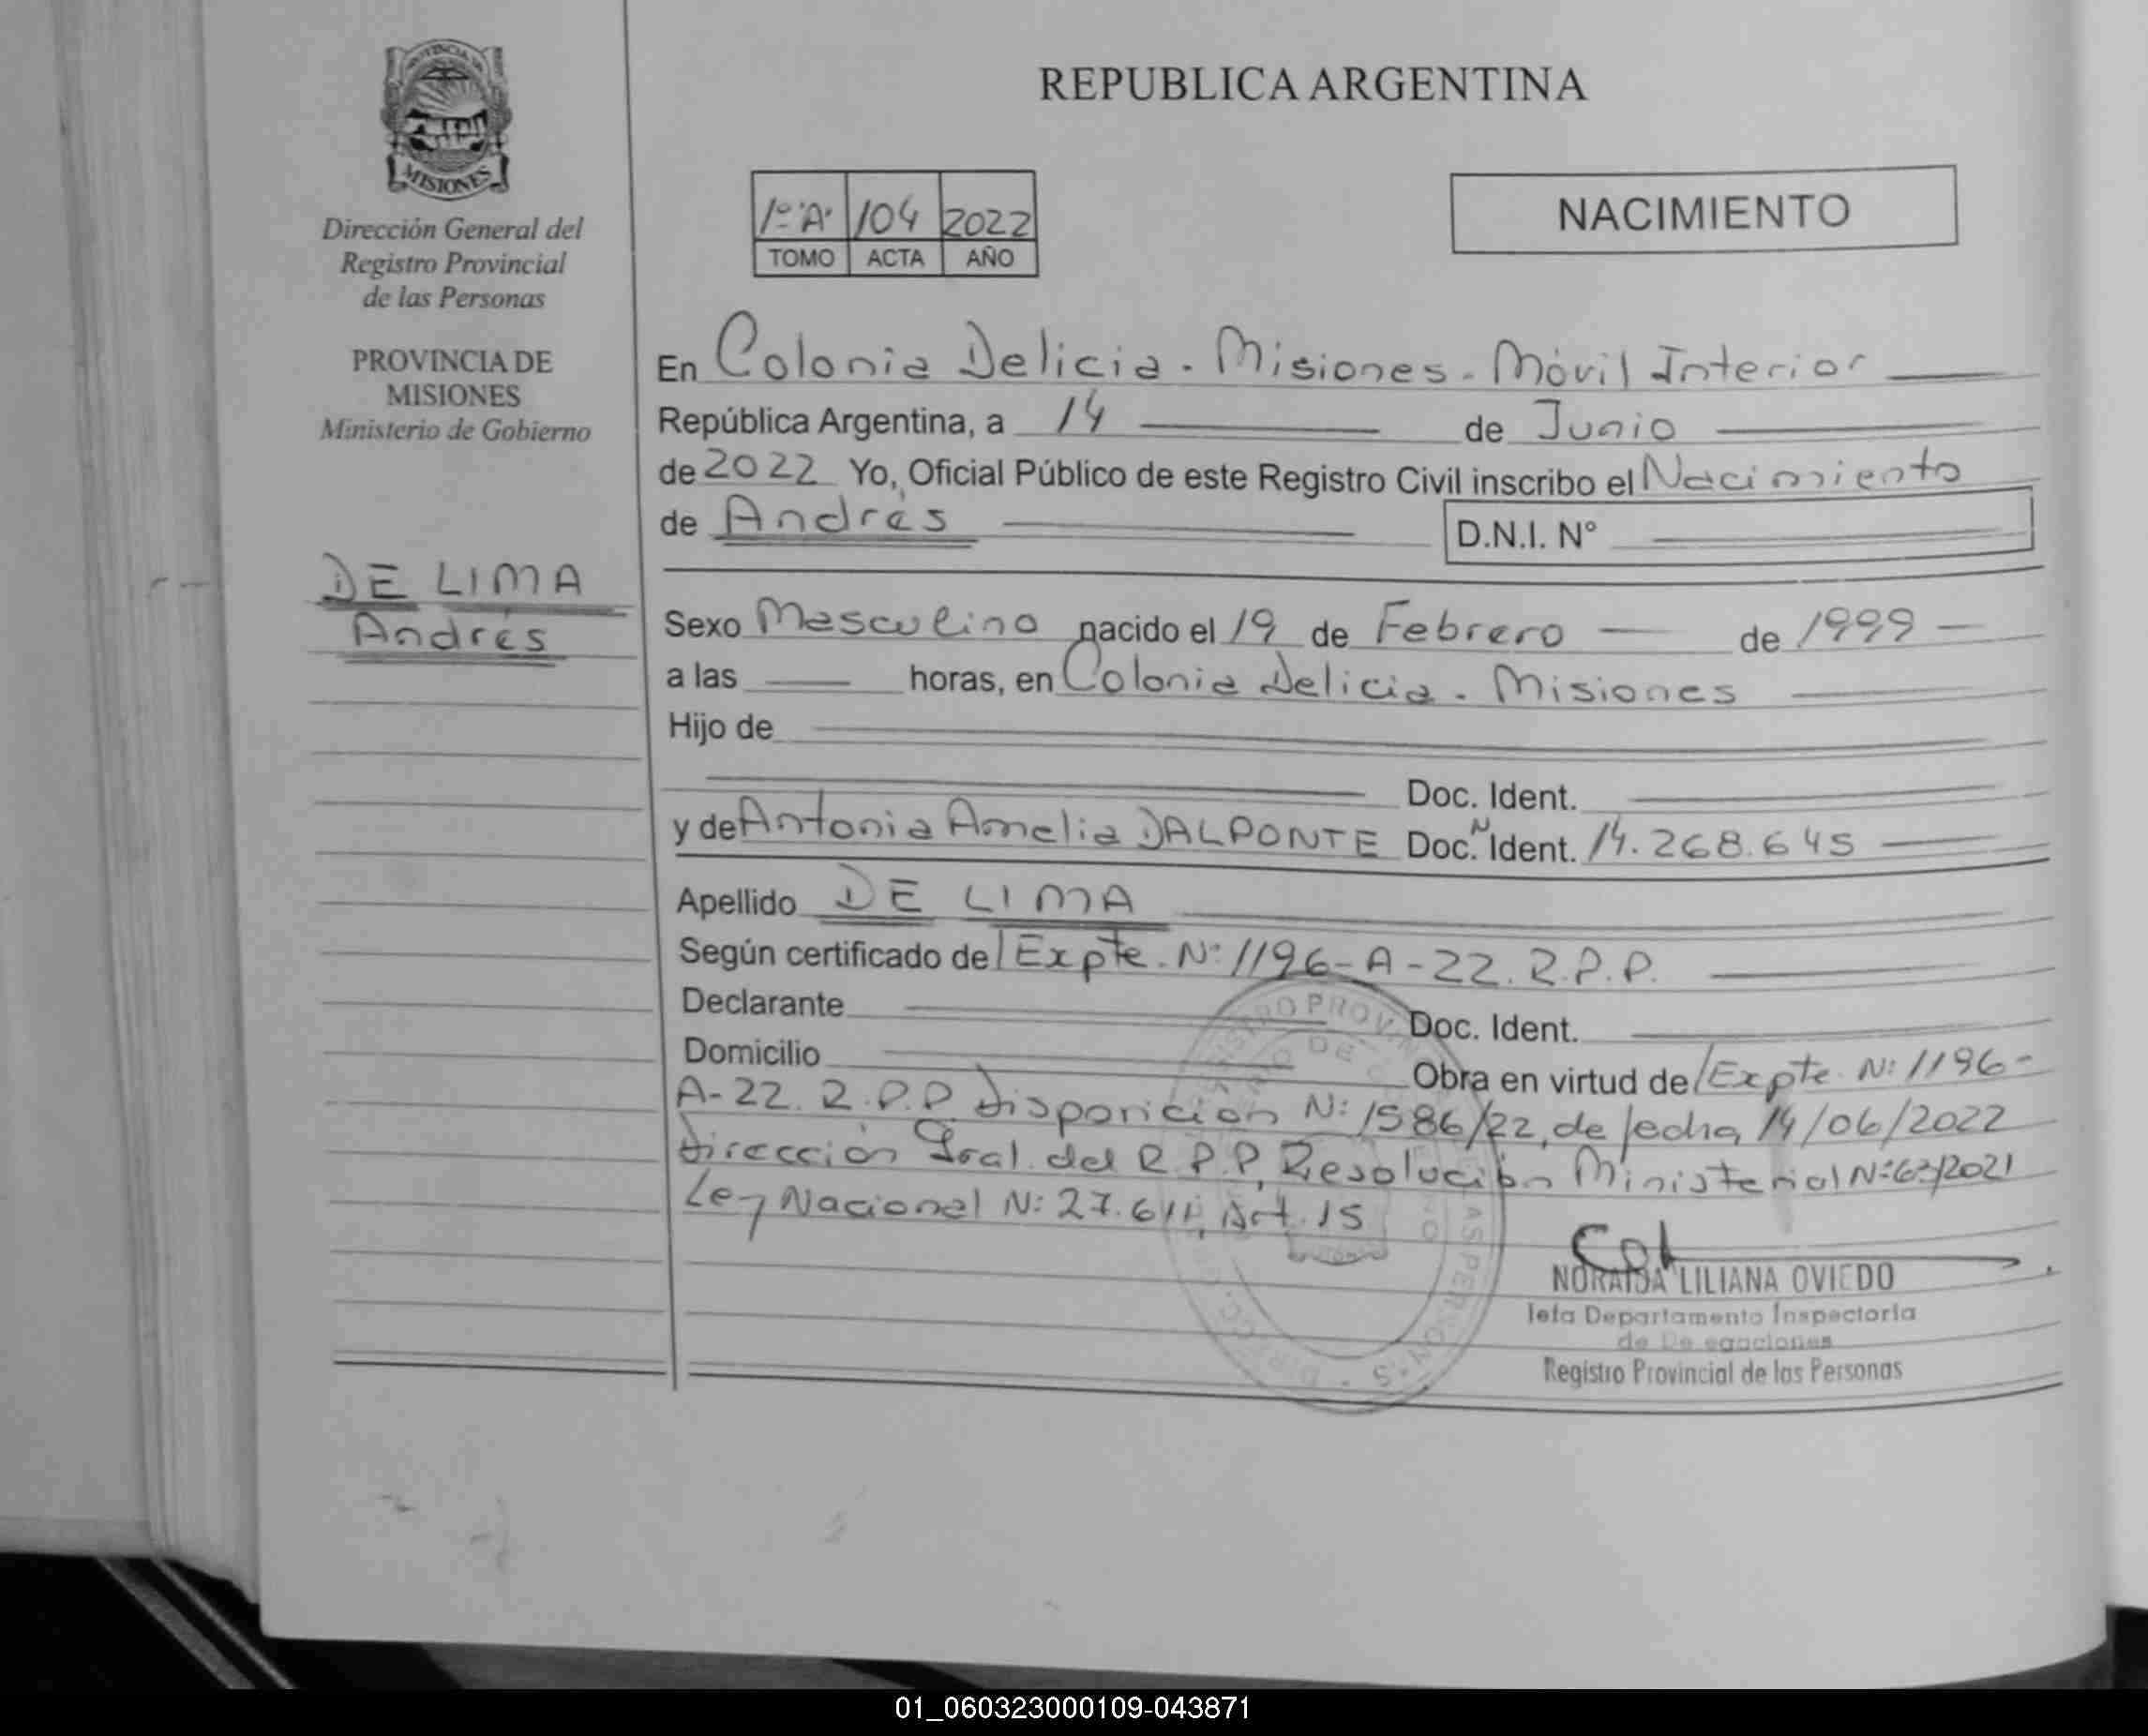 PROVINCIA DE
MISIONES
Dirección General del
Registro Provincial
de las Personas
PROVINCIA DE
MISIONES
Ministerio de Gobierno
DE LIMA
Andrés
REPUBLICA ARGENTINA
1º "A" 104 2022
TOMO ACTA AÑO
NACIMIENTO
En Colonia Delicia - Misiones - Móvil Interior
República Argentina, a 14 de Junio
de 2022 Yo, Oficial Público de este Registro Civil inscribo el Nacimiento
de Andrés D.N.I. Nº
Sexo Masculino nacido el 19 de Febrero de 1999
a las horas, en Colonia Delicia - Misiones
Hijo de
Doc. Ident.
y de Antonia Amelia DALPONTE Doc. N Ident. 14.268.645
Apellido DE LIMA
Según certificado de Expte. Nº 1196-A-22. R.P.P.
Declarante Doc. Ident.
Domicilio Obra en virtud de Expte. Nº 1196-
A-22. R.P.P. Disposición Nº 1586/22, de fecha 14/06/2022
Dirección Gral. del R.P.P, Resolución Ministerial Nº 63/2021
Ley Nacional Nº 27.611, Art. 15
NORAIDA LILIANA OVIEDO
Jefa Departamento Inspectoría
de Delegaciones
Registro Provincial de las Personas
01_060323000109-043871